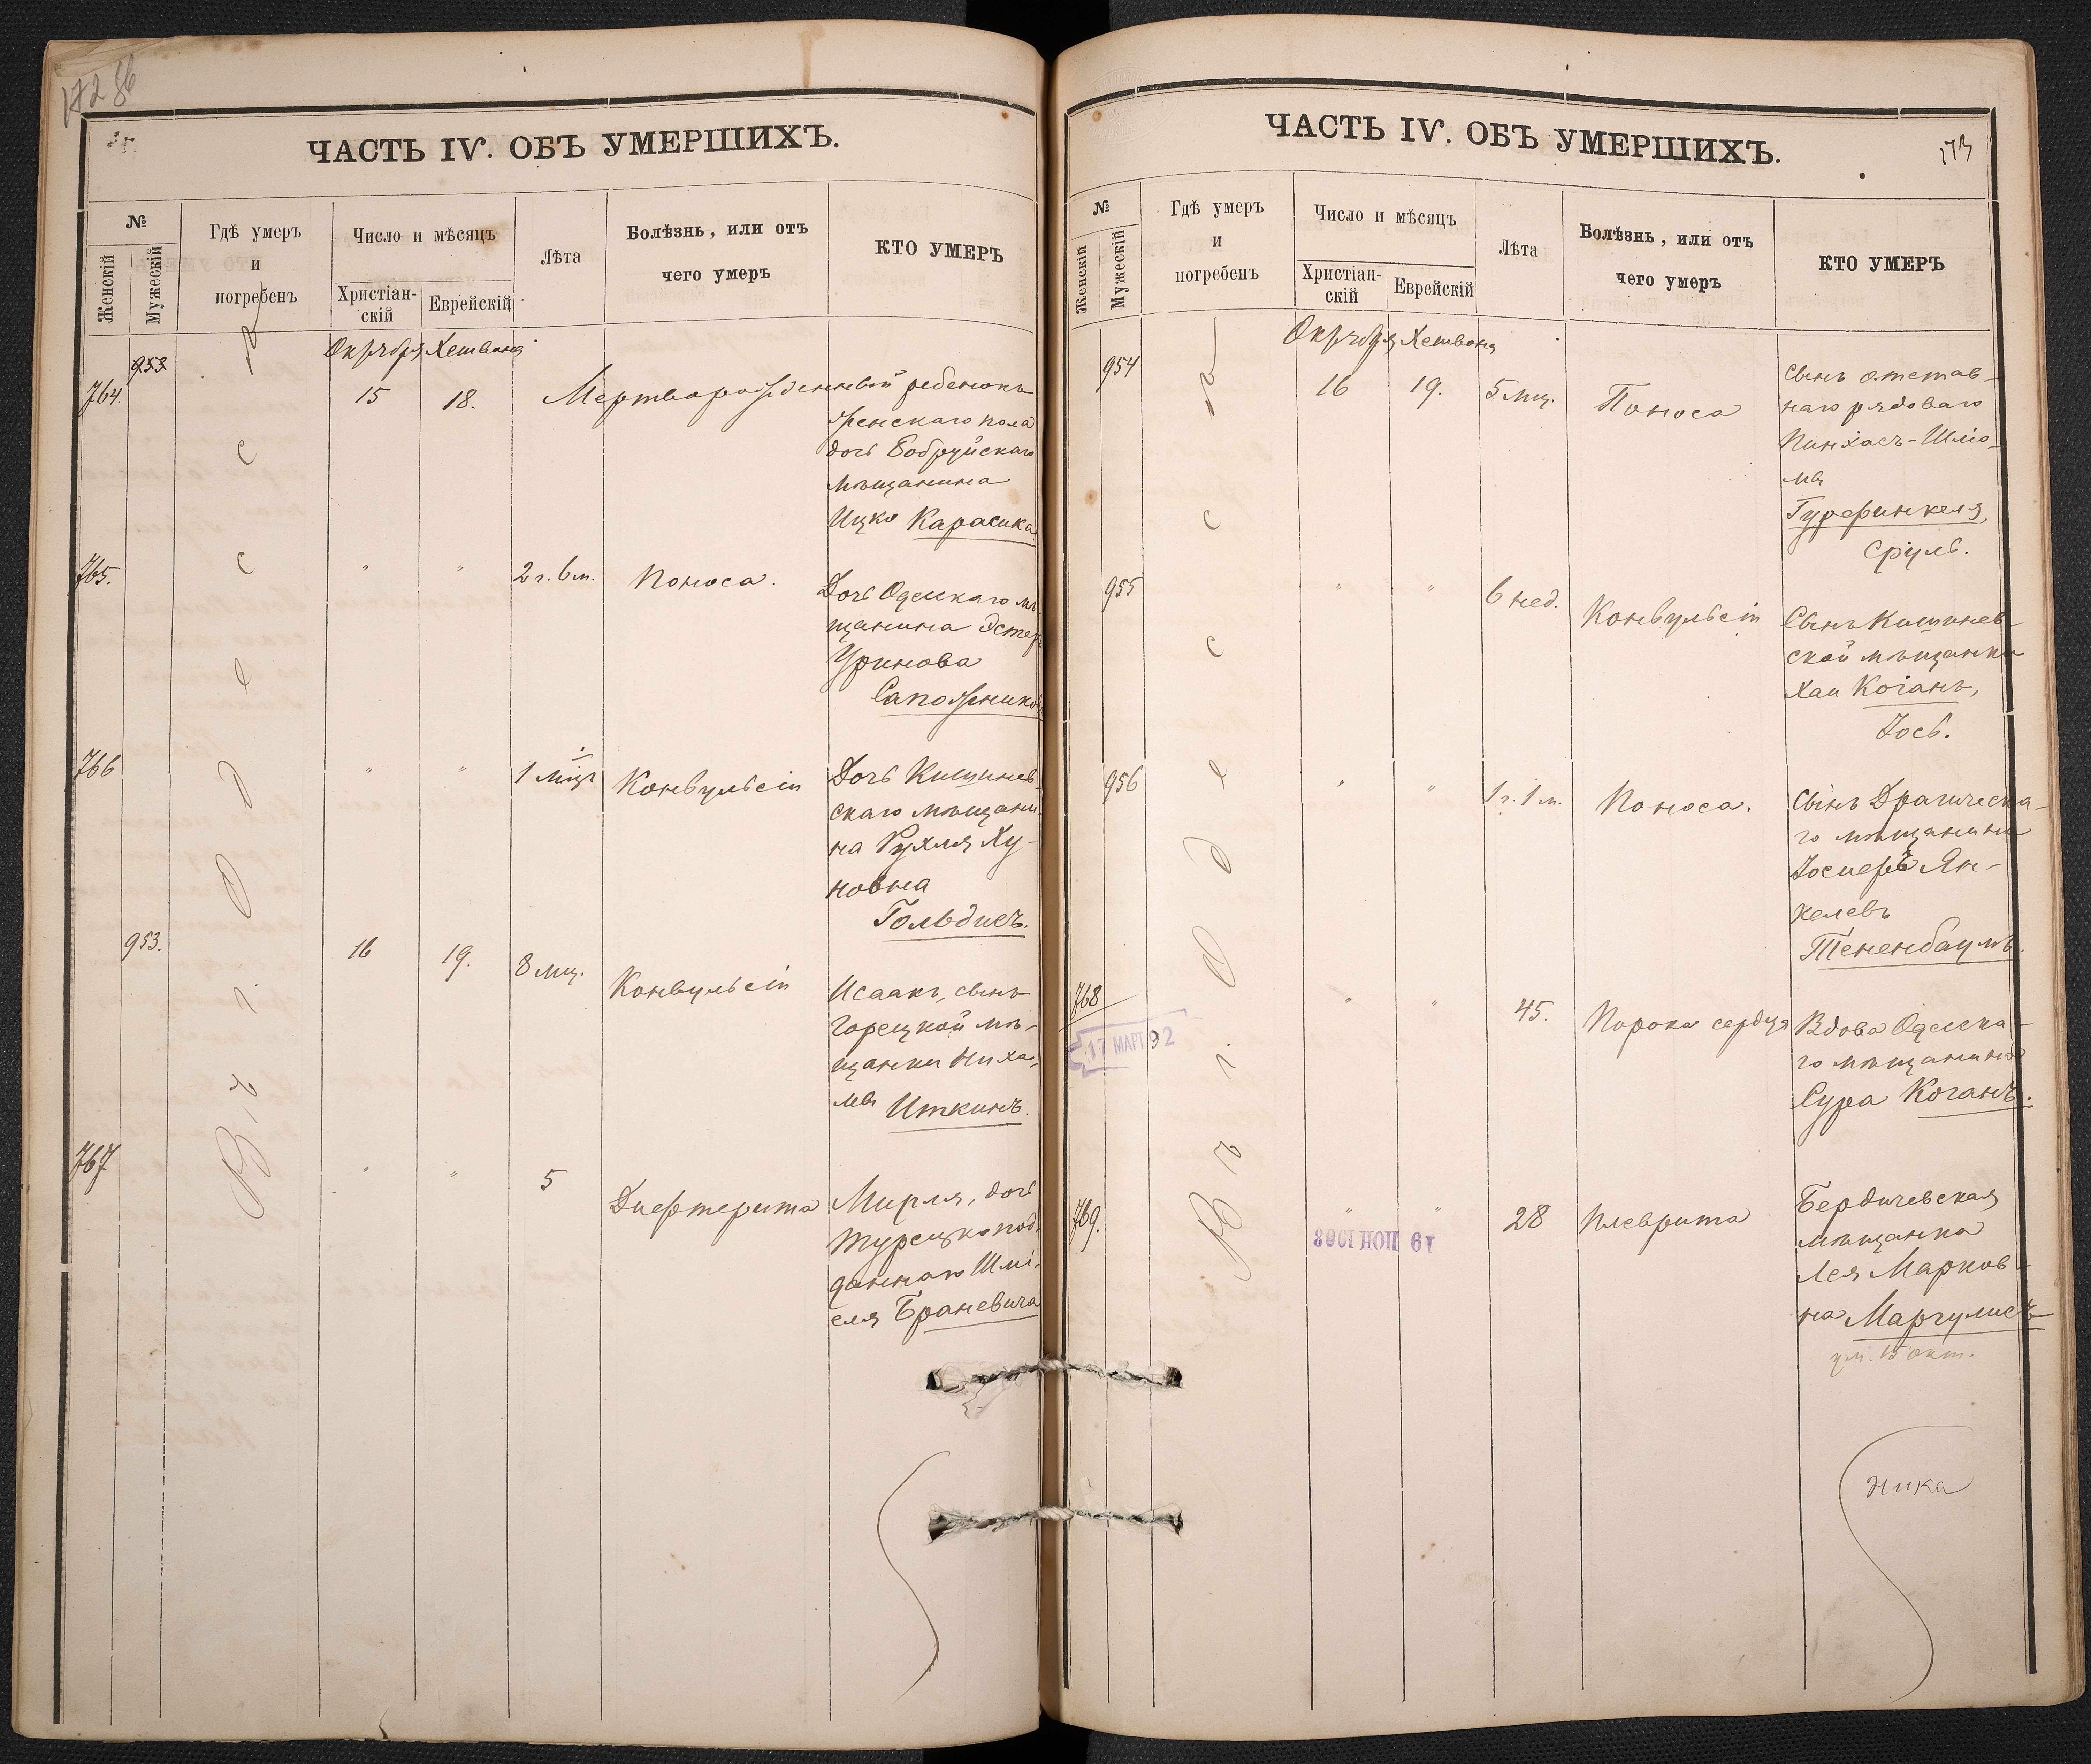 172 86
ЧАСТЬ IV. ОБЪ УМЕРШИХЪ.
№
Женскій
Мужескій
Гдѣ умеръ
и
погребенъ
Число и мѣсяцъ
Христіан-
скій
Еврейскій
Лѣта
Болѣзнь, или отъ
чего умеръ
КТО УМЕРЪ
Въ г. Одессѣ
Октября Хешвана
764. 953 15 18. Мертворожденный ребенокъ
женскаго пола
дочь Бобруйскаго
мѣщанина
Ицко Карасика
765. " " 2 г. 6 м. Поноса. Дочь Одесскаго мѣ-
щанина Эстеръ
Уринова
Сапожникова
766 " " 1 мѣц Конвульсіи Дочь Кишинев-
скаго мѣщани-
на Рухля Ху-
новна
Гольдисъ.
953. 16 19. 8 мц. Конвульсіи Исаакъ, сынъ
Горецкой мѣ-
щанки Ниха-
мы Иткинъ.
767 " " 5 Дифтерита Мирля, дочь
турецко под-
даннаго Шмі-
еля Браневича
ЧАСТЬ IV. ОБЪ УМЕРШИХЪ.
173
№
Женскій
Мужескій
Гдѣ умеръ
и
погребенъ
Число и мѣсяцъ
Христіан-
скій
Еврейскій
Лѣта
Болѣзнь, или отъ
чего умеръ
КТО УМЕРЪ
Въ г. Одессѣ
Октября Хешвана
954 16 19. 5 мц. Поноса Сынъ отстав-
наго рядоваго
Пинхасъ-Шлио-
мы
Гурфинкеля,
Сруль.
955 " " 6 нед. Конвульсіи Сынъ Кишинев-
ской мѣщанки
Хаи Коганъ,
Іось.
956 " " 1 г. 1 м. Поноса. Сынъ Драгическа-
го мѣщанина
Іосифъ Ян-
келевъ
Тененбаумъ.
768 " " 45. Порока сердца Вдова Одесска-
го мѣщанина
Сура Коганъ.
17 МАРТ 92
769. " " 28 Плеврита Бердичевская
мѣщанка
Лея Марков-
на Маргулисъ
ум. 15 окт.
19 ИЮН 1903
ника